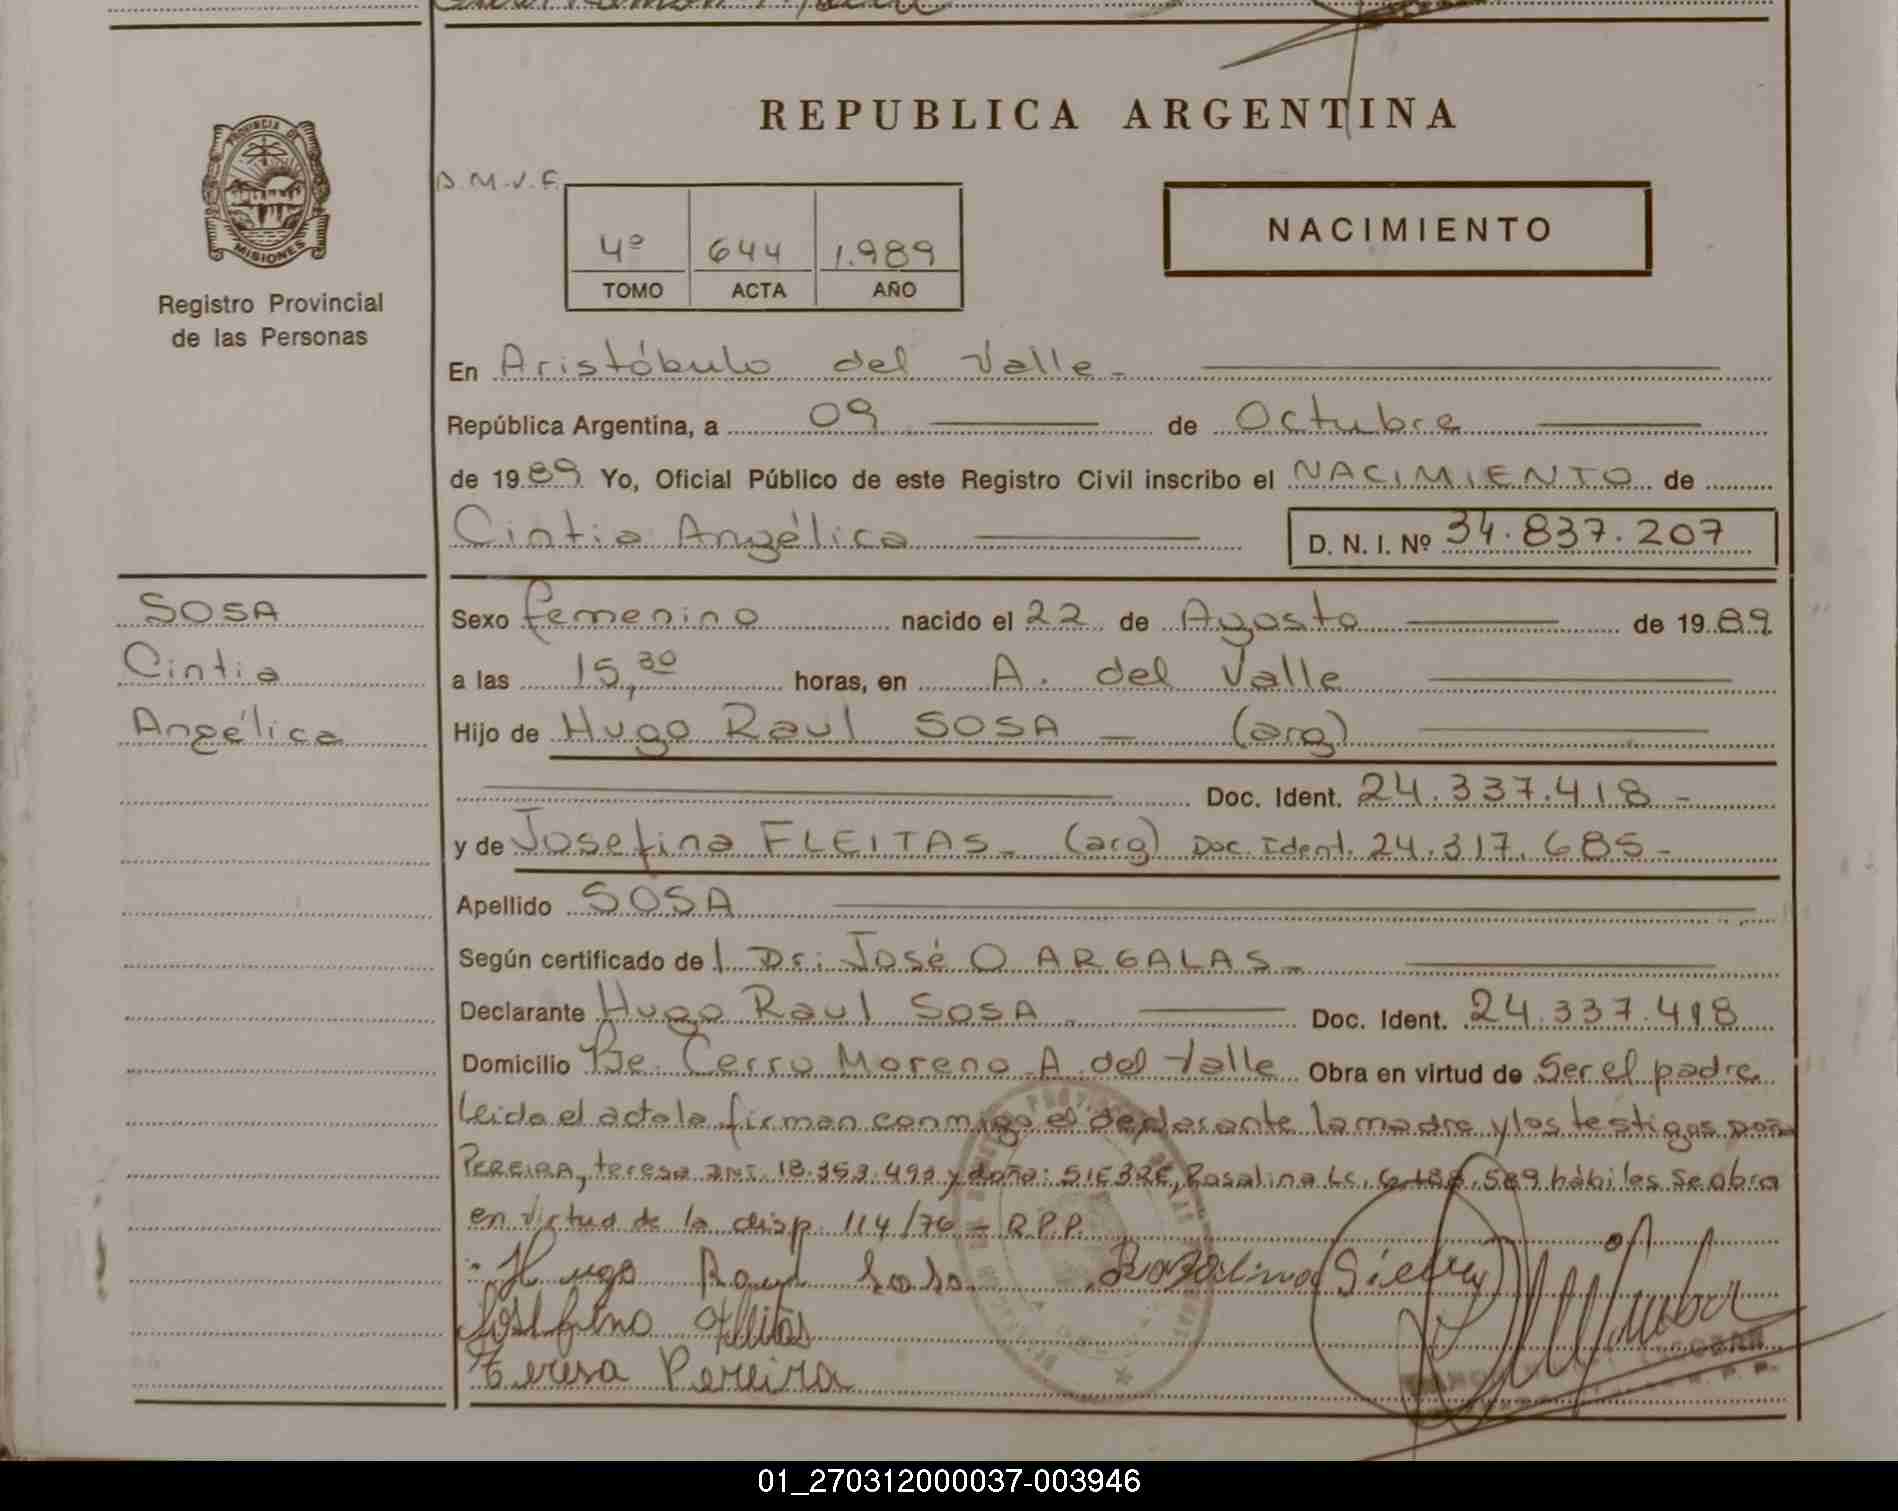 REPUBLICA ARGENTINA
PROVINCIA DE
MISIONES
Registro Provincial
de las Personas
D.M.V.F.
4º 644 1.989
TOMO ACTA AÑO
NACIMIENTO
En Aristóbulo del Valle.-
República Argentina, a 09 de Octubre
de 1989 Yo, Oficial Público de este Registro Civil inscribo el NACIMIENTO de
Cintia Angélica
D. N. I. Nº 34.837.207
SOSA
Cintia
Angélica
Sexo femenino nacido el 22 de Agosto de 1989
a las 15,30 horas, en A. del Valle
Hijo de Hugo Raul SOSA - (arg)
Doc. Ident. 24.337.418 -
y de Josefina FLEITAS - (arg) Doc. Ident. 24.317.685 -
Apellido SOSA
Según certificado del Dr: José O ARGALAS -
Declarante Hugo Raul SOSA Doc. Ident. 24.337.418
Domicilio Be. Cerro Moreno A. del Valle Obra en virtud de Ser el padre
Leida el acta la firman conmigo el declarante la madre y los testigos doña
PEREIRA, teresa DNI. 18.353.493 y doña: Rosalina Lc. 6.188.589 hábiles Se obra
en virtud de la disp. 114/76 - R.P.P.
Hugo Raul Sosa Rosalina
Josefina Fleitas
Teresa Pereira
ESCOBAR
01_270312000037-003946